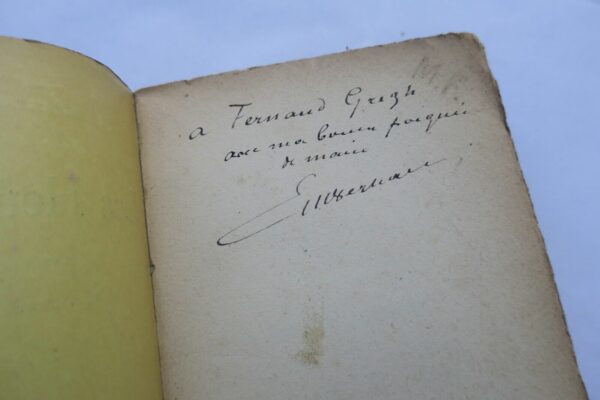 a Fernand Gregh
avec ma bonne poignée
de main
EmVerhaeren